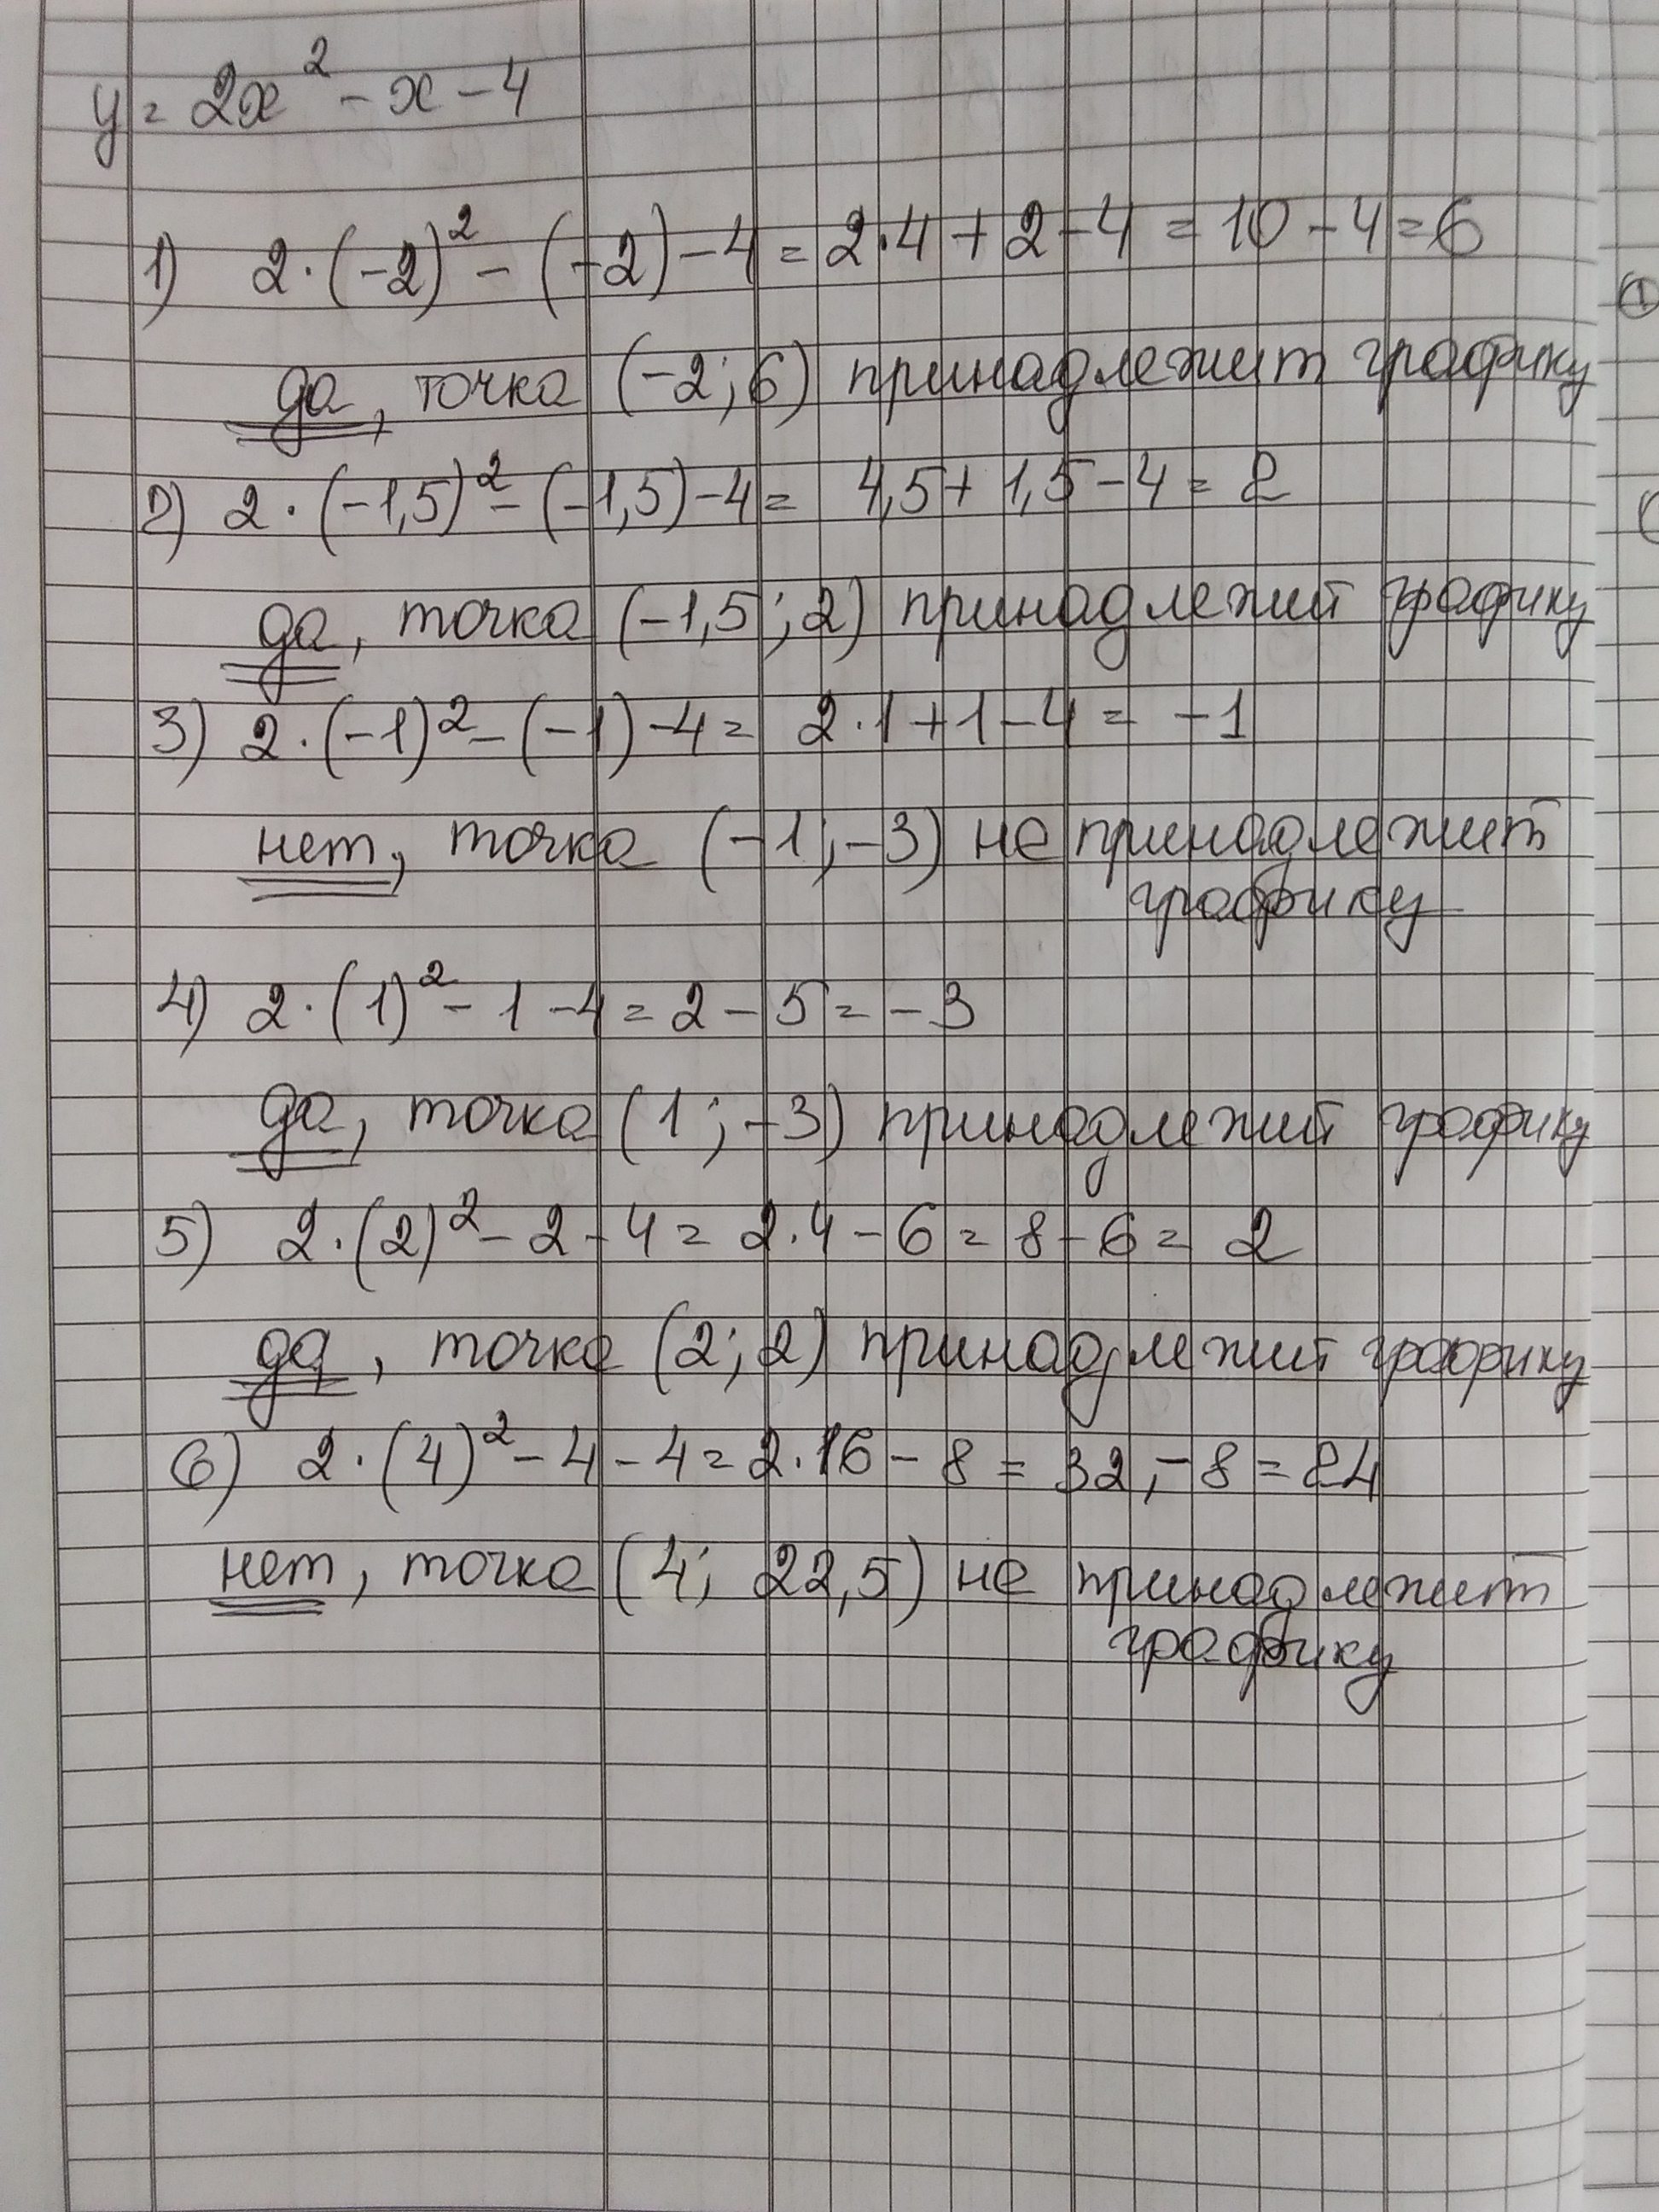 y = 2x² - x - 4
1) 2·(-2)² - (-2) - 4 = 2·4 + 2 - 4 = 10 - 4 = 6
да, точка (-2; 6) принадлежит графику
2) 2·(-1,5)² - (-1,5) - 4 = 4,5 + 1,5 - 4 = 2
да, точка (-1,5; 2) принадлежит графику
3) 2·(-1)² - (-1) - 4 = 2·1 + 1 - 4 = -1
нет, точка (-1; -3) не принадлежит
графику
4) 2·(1)² - 1 - 4 = 2 - 5 = -3
да, точка (1; -3) принадлежит графику
5) 2·(2)² - 2 - 4 = 2·4 - 6 = 8 - 6 = 2
да, точка (2; 2) принадлежит графику
6) 2·(4)² - 4 - 4 = 2·16 - 8 = 32, - 8 = 24
нет, точка (4; 22,5) не принадлежит
графику